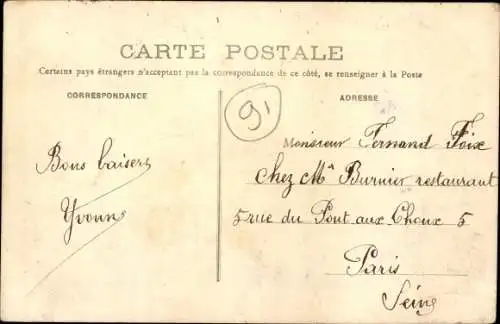 CARTE POSTALE
Certains pays étrangers n'acceptant pas la correspondance de ce côté, se renseigner à la Poste
CORRESPONDANCE
ADRESSE
91
Bons baisers
Yvonne
Monsieur Fernand Foix
Chez Mr Burnier restaurant
5 rue du Pont aux Choux 5
Paris
Seine